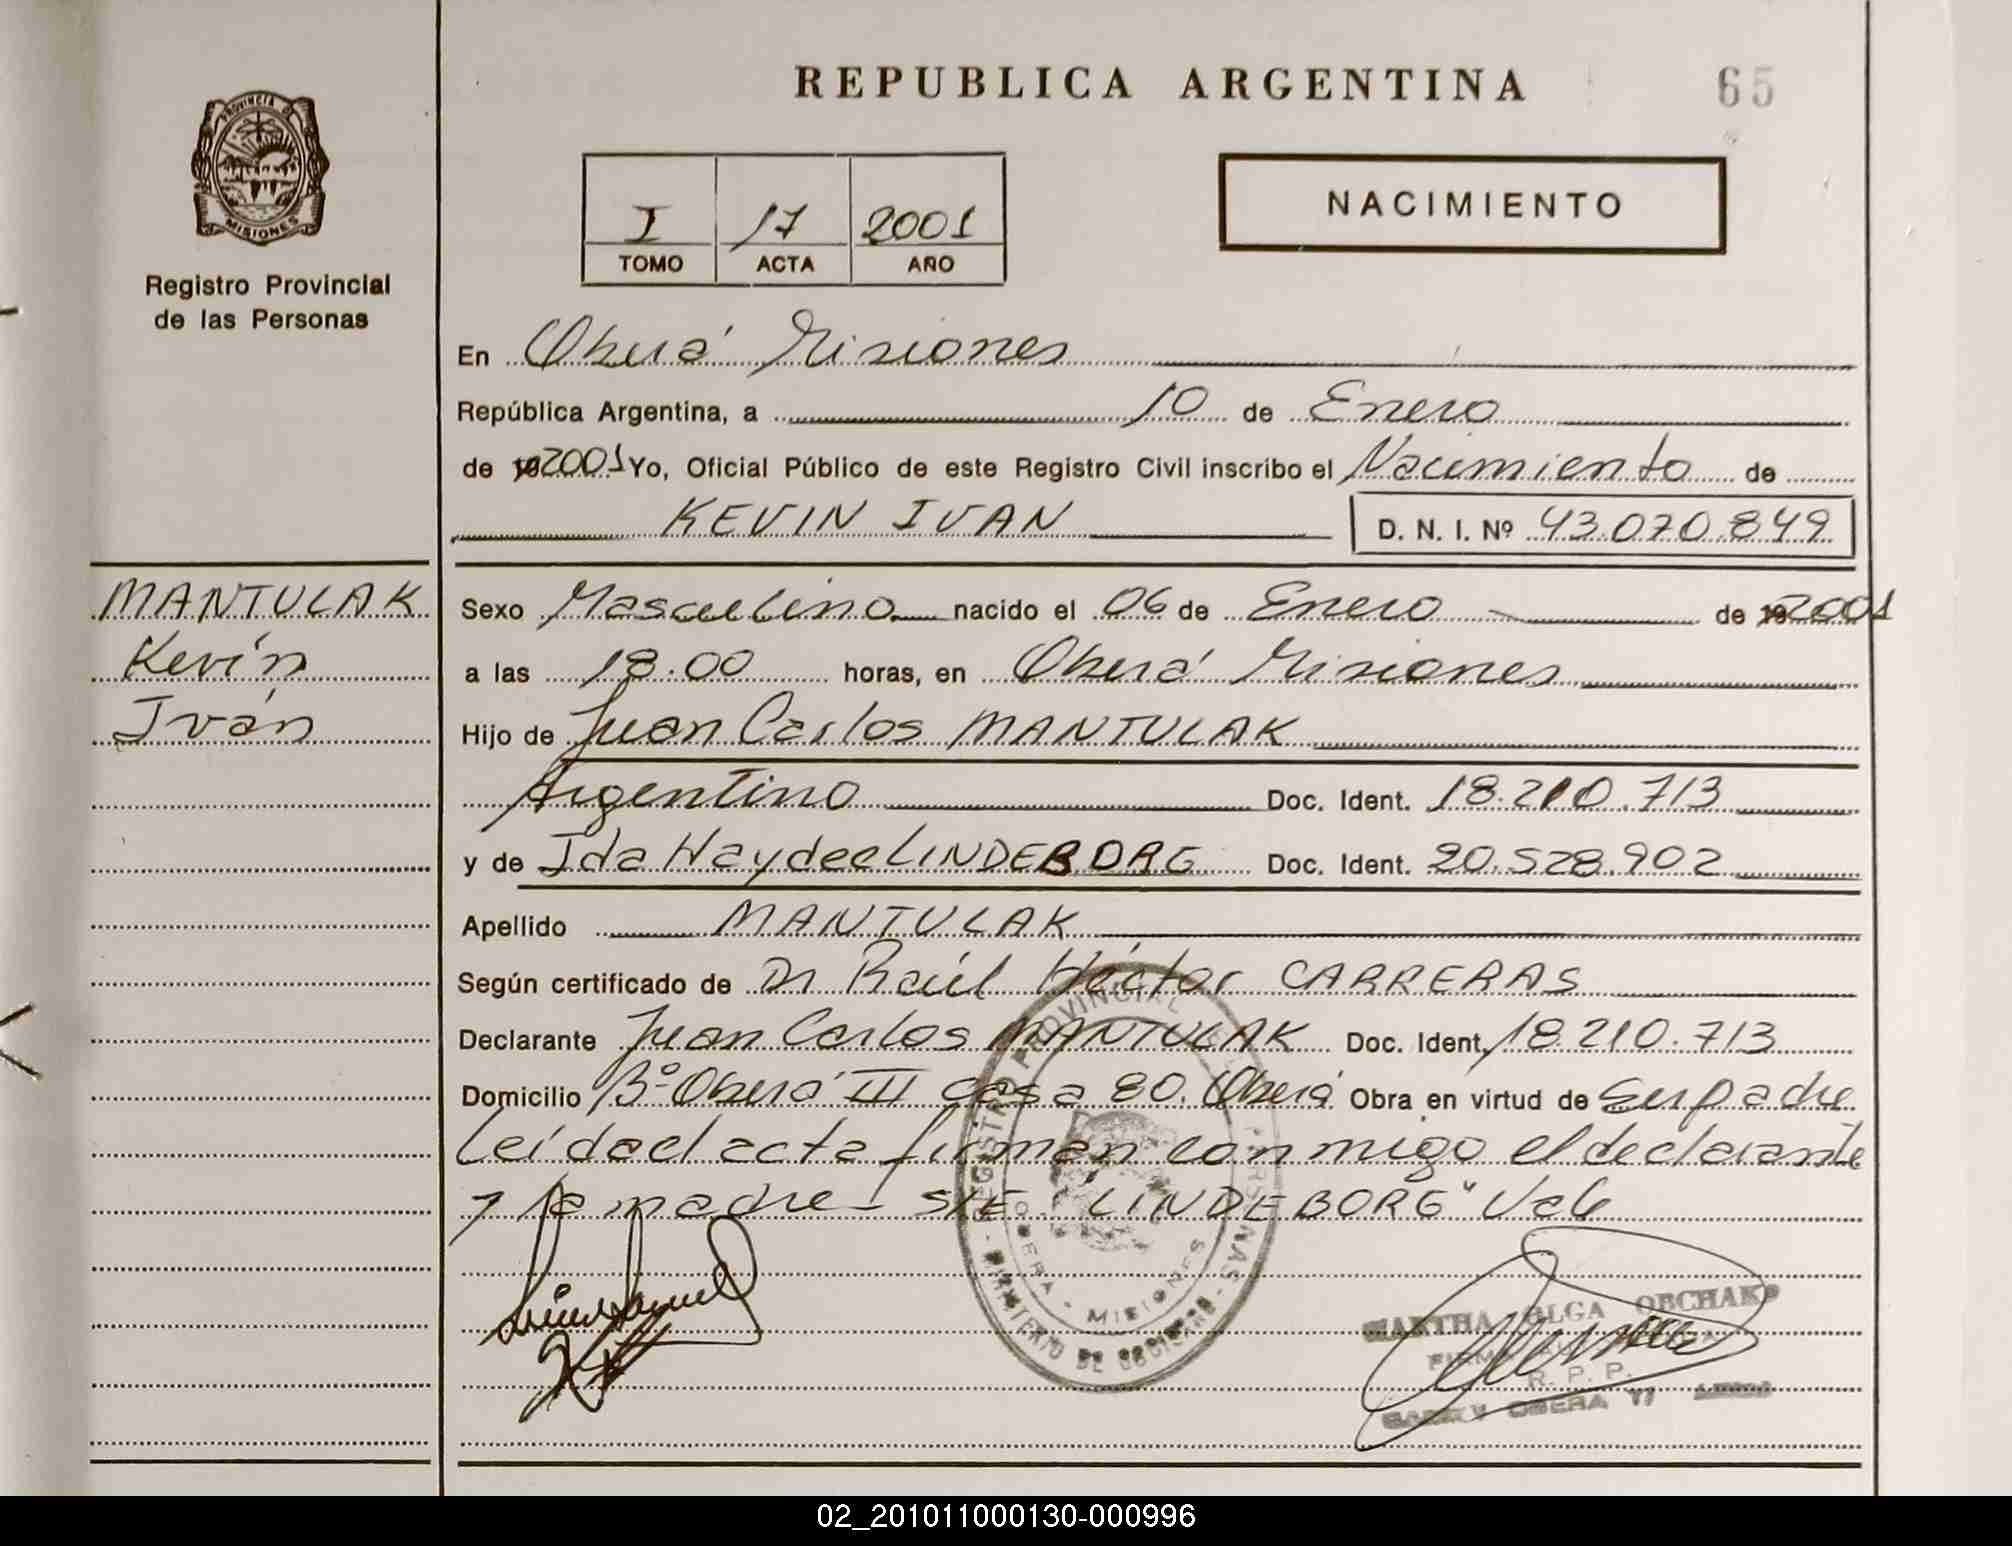 REPUBLICA ARGENTINA
65
PROVINCIA D
MISIONES
Registro Provincial
de las Personas
I 17 2001
TOMO ACTA AÑO
NACIMIENTO
En Oberá Misiones
República Argentina, a 10 de Enero
de 2001 Yo, Oficial Público de este Registro Civil inscribo el Nacimiento de
KEVIN IVAN D. N. I. Nº 43.070.849
MANTULAK
Kevín
Iván
Sexo Masculino nacido el 06 de Enero de 2001
a las 18.00 horas, en Oberá Misiones
Hijo de Juan Carlos MANTULAK
Argentino Doc. Ident. 18.210.713
y de Ida Haydee LINDEBORG Doc. Ident. 20.528.902
Apellido MANTULAK
Según certificado de Dr Raúl Héctor CARRERAS
Declarante Juan Carlos MANTULAK Doc. Ident. 18.210.713
Domicilio Bº Oberá III Casa 80. Oberá Obra en virtud de Ser padre
Leída el acta firman conmigo el declarante
y la madre - S/E "LINDEBORG" Vale
REGISTRO PROVINCIAL DE LAS PERSONAS
OBERA - MISIONES
MINISTERIO DE GOBIERNO
MARTHA OLGA OBCHAKO
R. P. P.
OBERA
02_201011000130-000996